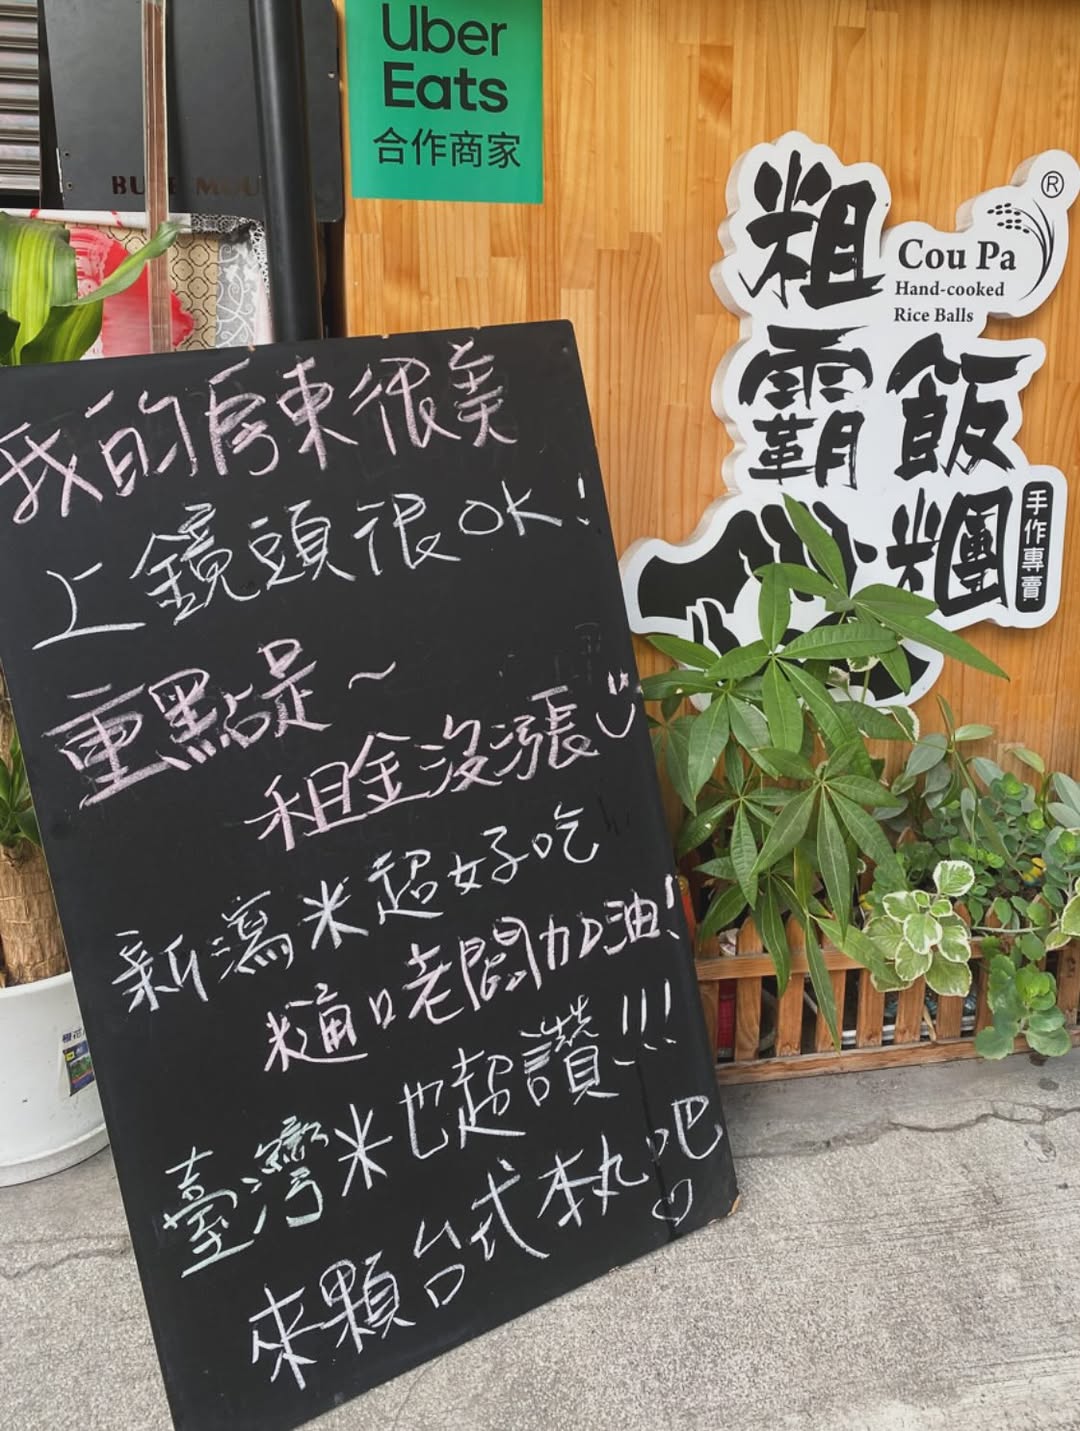 Uber
Eats
合作商家
粗
霸
飯
糰
Cou Pa
Hand-cooked
Rice Balls
®
手作專賣
我的房東很美
上鏡頭很OK!
重點是~
租金沒漲
新瀉米超好吃
糒口老闆加油!
臺灣米也超讚!!!
來顆台式本丸吧